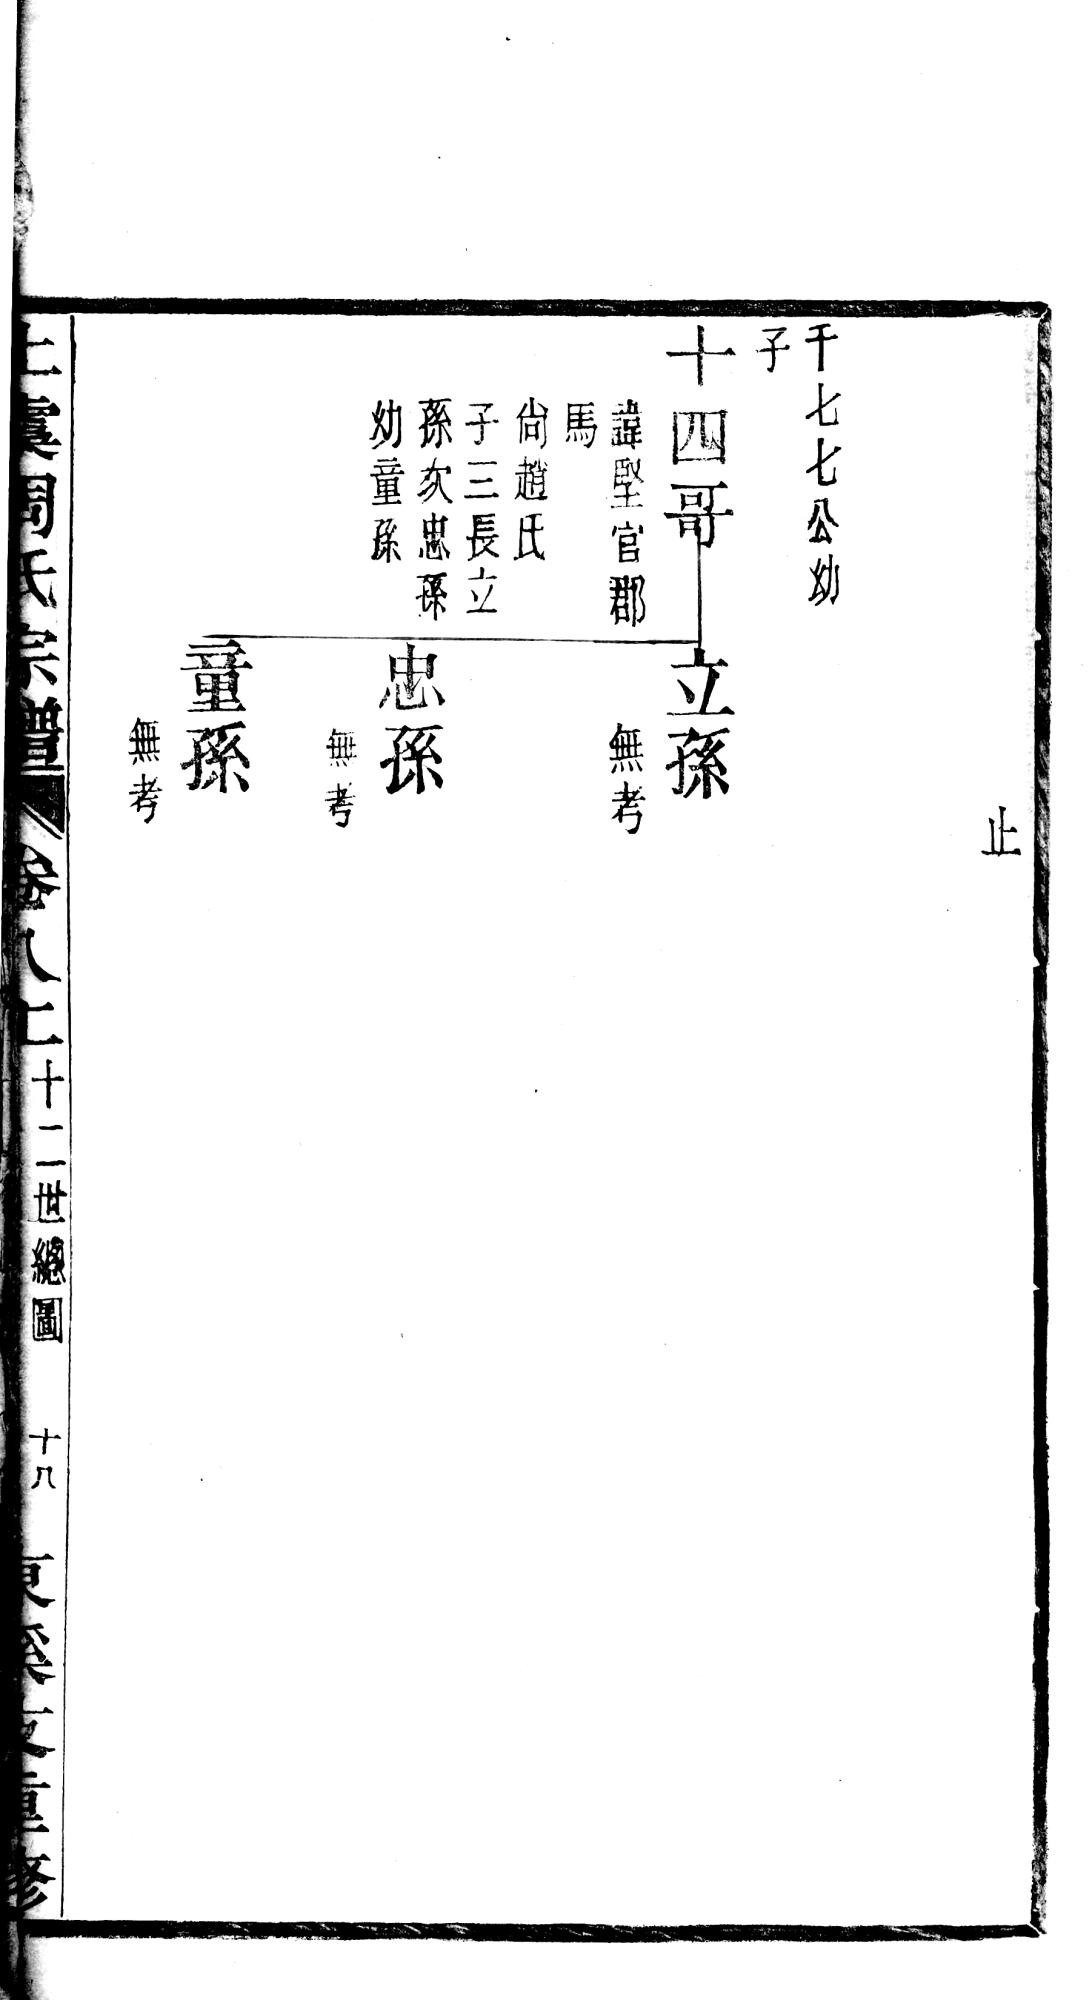 止
千七七公幼
子
十四哥
諱堅官郡
馬
尙趙氏
子三長立
孫次忠孫
幼童孫
立孫
無考
忠孫
無考
童孫
無考
上虞周氏宗譜
卷八上
十二世總圖
十八
重修